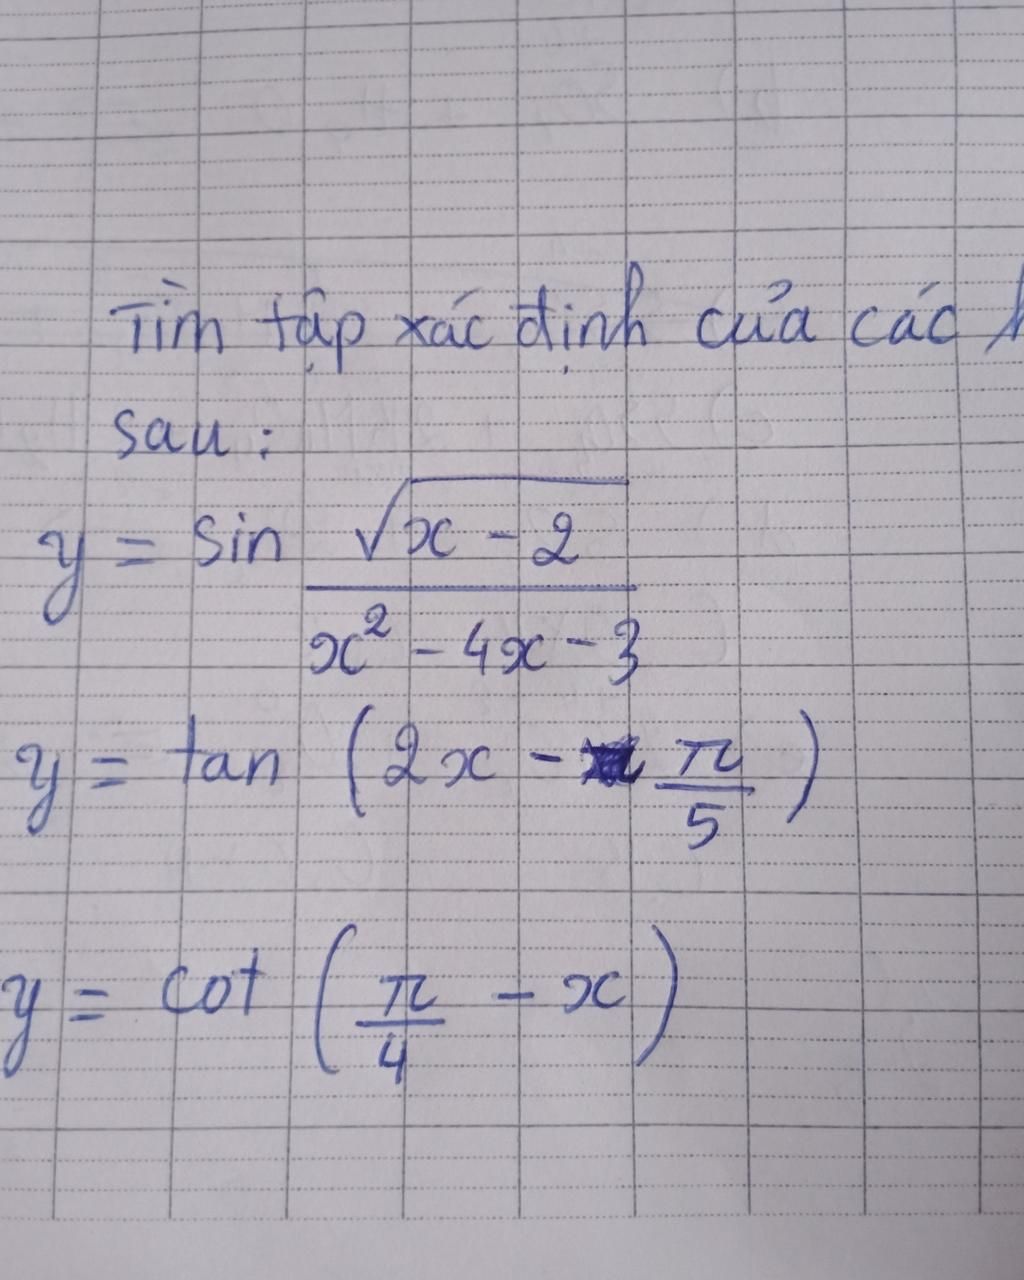 Tìm tập xác định của các
sau:
y = sin √(x - 2) / (x² - 4x - 3)
y = tan (2x - π/5)
y = cot (π/4 - x)